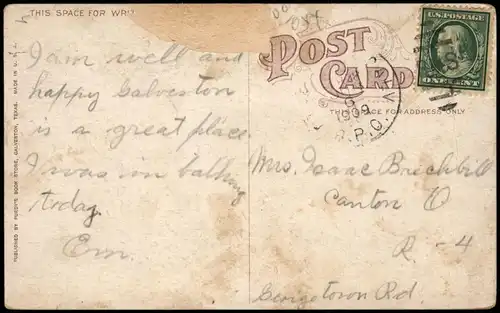 THIS SPACE FOR WRI
POST CARD
U.S. POSTAGE
ONE CENT
1909
R.P.O.
THIS SPACE FOR ADDRESS ONLY
PUBLISHED BY PURDY'S BOOK STORE, GALVESTON, TEXAS. MADE IN U. S. A.
I am well and
happy Galveston
is a great place
I was in bathing
today.
Em.
Mrs. Isaac Brechbill
Canton O
R - 4
Georgetown Rd.